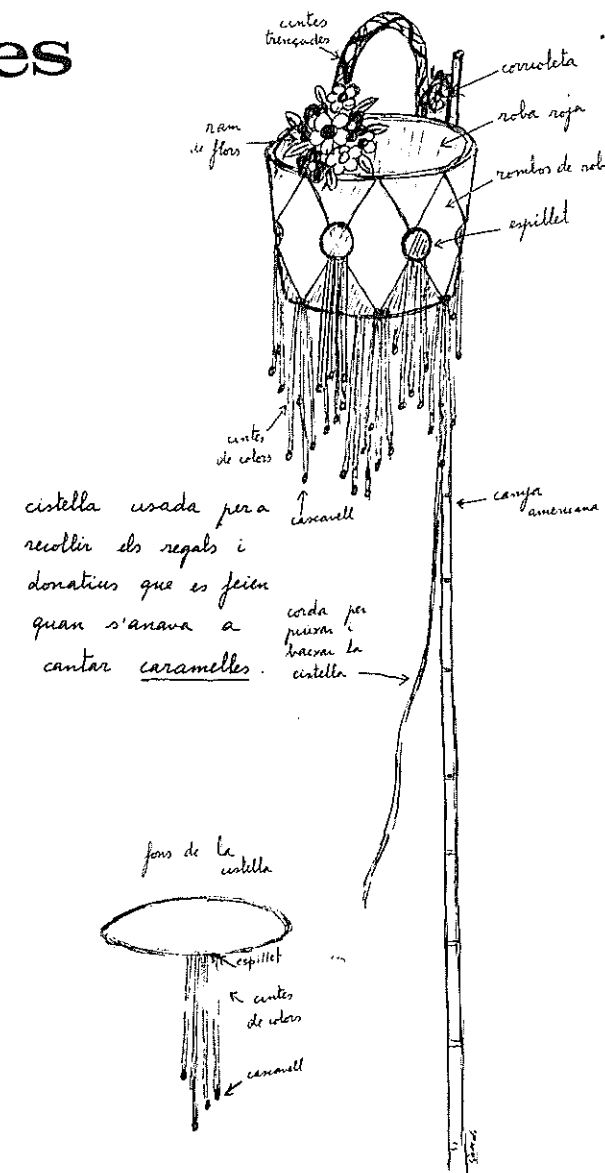 es
cintes
trençades
corrioleta
roba roja
ram
de flors
rombos de rob
espillet
cintes
de colors
cascavell
canya
americana
cistella usada per a
recollir els regals i
donatius que es feien
quan s'anava a
cantar caramelles.
corda per
puixar i
baixar la
cistella
fons de la
cistella
espillet
cintes
de colors
cascavell